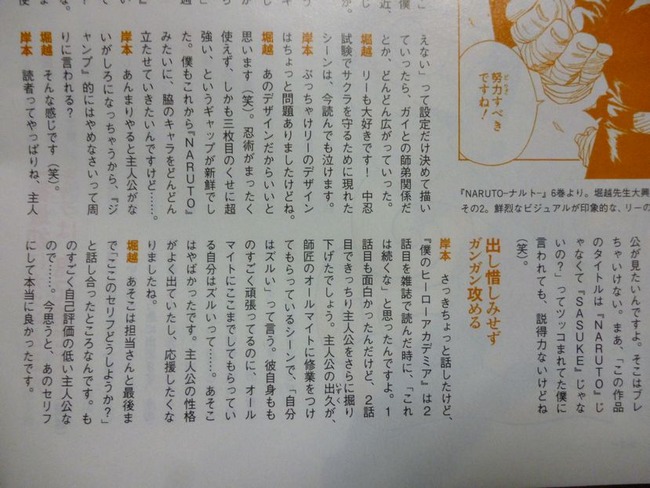 努力すべき
ですね！
『NARUTO-ナルト-』6巻より。堀越先生大興
その2。鮮烈なビジュアルが印象的な、リーの
えない」って設定だけ決めて描い
ていったら、ガイとの師弟関係だ
とか、どんどん広がっていった。
堀越 リーも大好きです！ 中忍
試験でサクラを守るために現れた
シーンは、今読んでも泣けます。
岸本 ぶっちゃけリーのデザイン
はちょっと問題ありましたけどね。
堀越 あのデザインだからいいと
思います（笑）。忍術がまったく
使えず、しかも三枚目のくせに超
強い、というギャップが新鮮でし
た。僕もこれから『NARUTO』
みたいに、脇のキャラをどんどん
立たせていきたいんですけど……。
岸本 あんまりやると主人公がな
いがしろになっちゃうから、『ジ
ャンプ』的にはやめなさいって周
りに言われる？
堀越 そんな感じです（笑）。
岸本 読者ってやっぱりね、主人
公が見たいんですよ。そこはブレ
ちゃいけない。まあ、「この作品
のタイトルは『NARUTO』じ
ゃなくて『SASUKE』じゃな
いの？」ってツッコまれてた僕に
言われても、説得力ないけどね
（笑）。
出し惜しみせず
ガンガン攻める
岸本 さっきちょっと話したけど、
『僕のヒーローアカデミア』は２
話目を雑誌で読んだ時に、「これ
は続くな」と思ったんですよ。１
話目も面白かったんだけど、２話
目できっちり主人公をさらに掘り
下げたでしょう。主人公の出久が、
師匠のオールマイトに修業をつけ
てもらっているシーンで、「自分
はズルい」って言う。彼自身もも
のすごく頑張ってるのに、オール
マイトにここまでしてもらってい
る自分はズルいって……。あそこ
はやばかったです。主人公の性格
がよく出ていたし、応援したくな
りましたね。
堀越 あそこは担当さんと最後ま
で「ここのセリフどうしようか？」
と話し合ったところなんです。も
のすごく自己評価の低い主人公な
ので……。今思うと、あのセリフ
にして本当に良かったです。